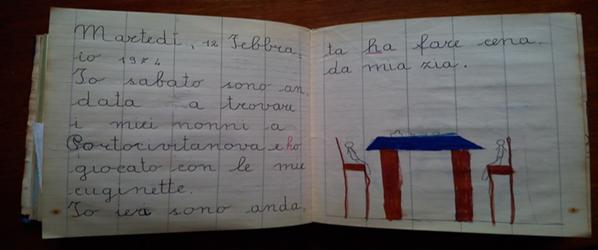 Martedì, 12 Febbra.
io 1974
Io sabato sono an
data a trovare
i miei nonni a
Portocivitanova e ho
giocato con le mie
cuginette.
Io ieri sono anda.
ta ha fare cena.
da mia zia.